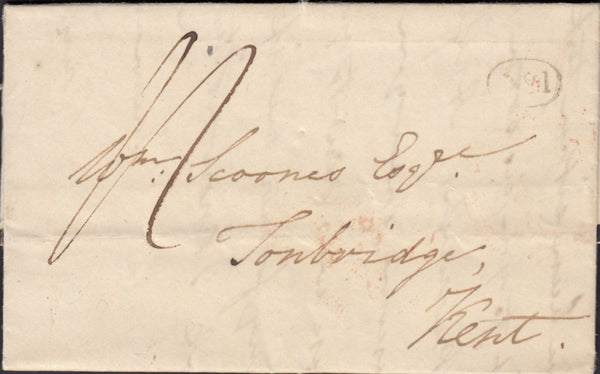 Wm: Scoones Esqre.
Tonbridge,
Kent.